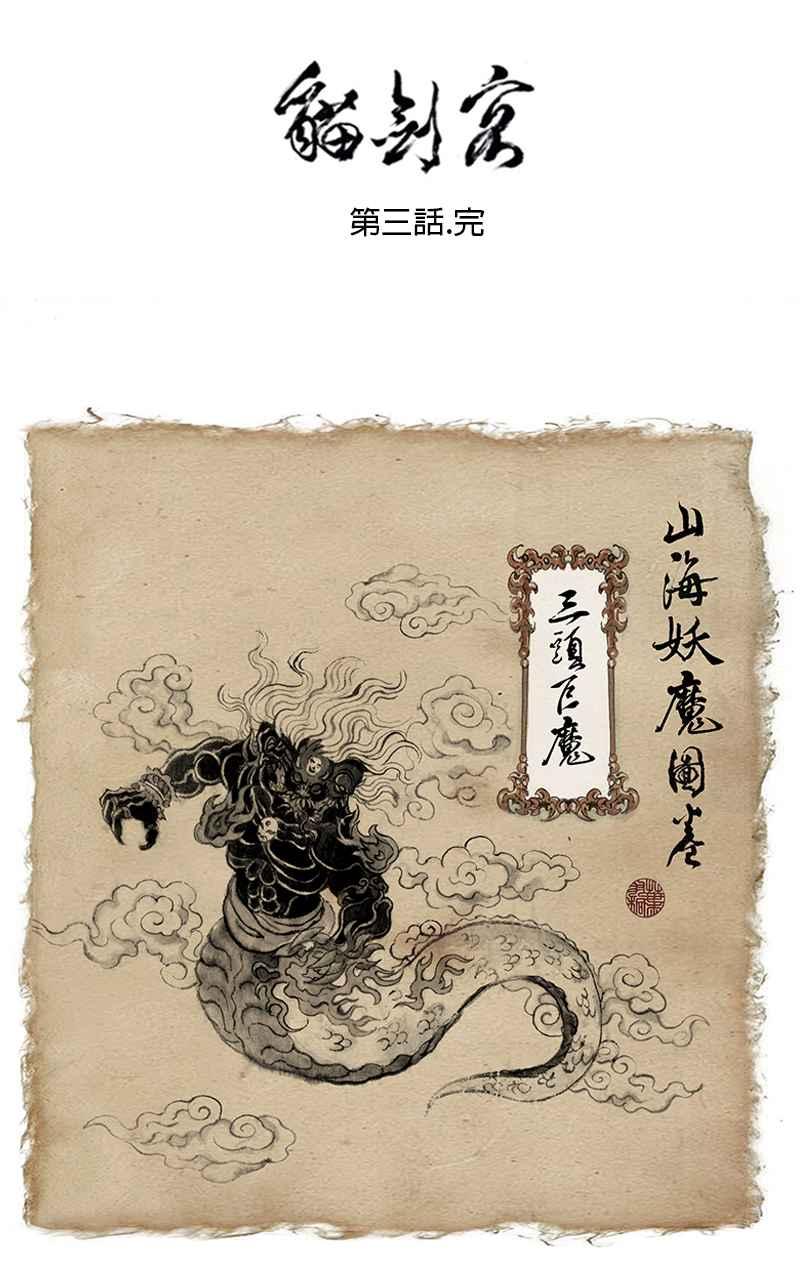 貓劍客
第三話.完
山海妖魔圖卷
三頭巨魔